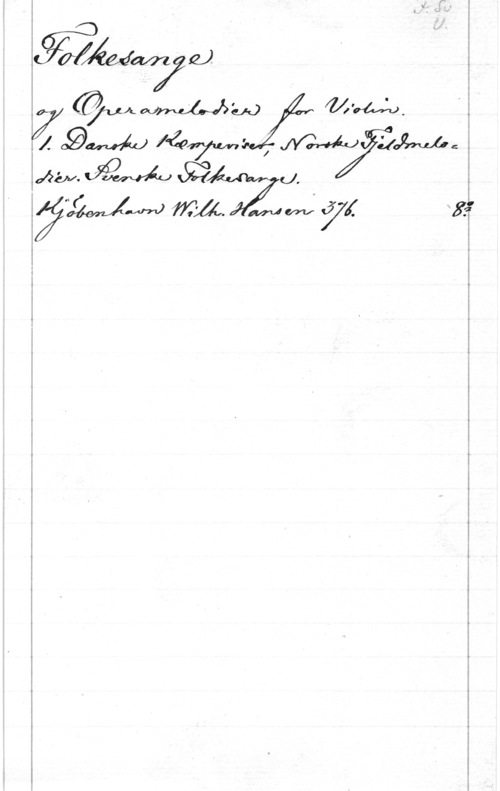 Folkesange
og Operamelodier for Violin.
1. Danske Kæmpeviser, Norske Fjeldmelo=
dier. Svenske Folkesange.
Kjöbenhavn Wilh. Hansen 376. 8º